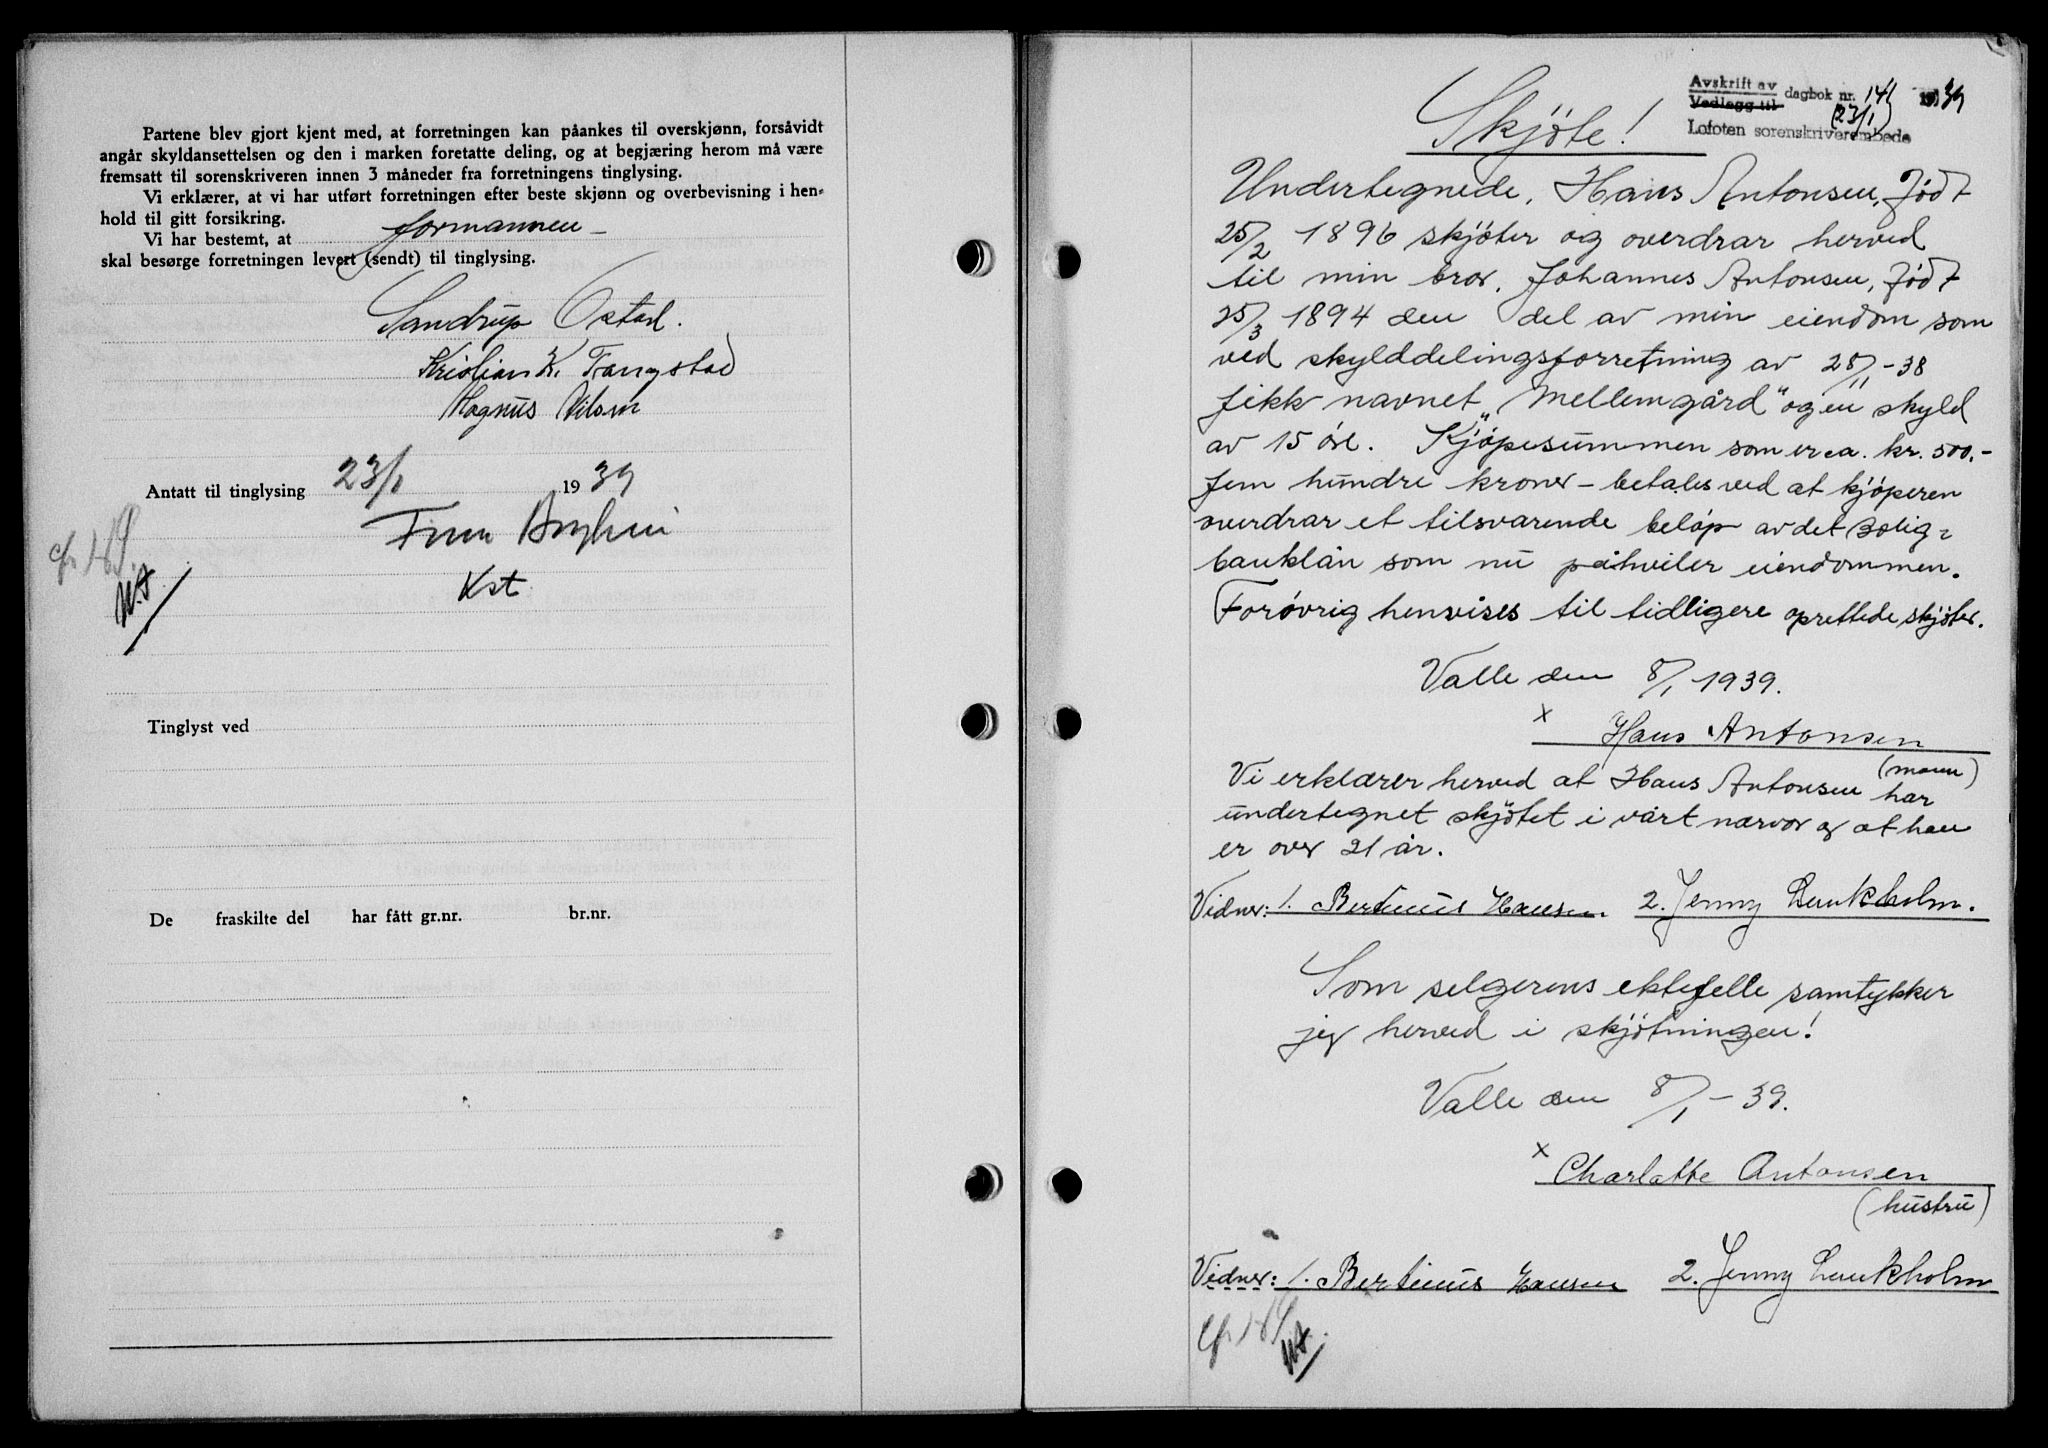 Partene blev gjort kjent med, at forretningen kan påankes til overskjønn, forsåvidt
angår skyldansettelsen og den i marken foretatte deling, og at begjæring herom må være
fremsatt til sorenskriveren innen 3 måneder fra forretningens tinglysing.
Vi erklærer, at vi har utført forretningen efter beste skjønn og overbevisning i hen-
hold til gitt forsikring.
Vi har bestemt, at formannen
skal besørge forretningen levert (sendt) til tinglysing.
Sandrup Ostad.
Kristian K. Fangstad
Magnus Nilsen
Antatt til tinglysing 23/1 1939
Kst
Tinglyst ved
De fraskilte del har fått gr.nr. br.nr.
Avskrift av
Vedlegg til dagbok nr. 141 1939
(23/1)
Lofoten sorenskriverembede
Skjöte!
Undertegnede, Hans Antonsen, født
25/2 1896 skjöter og overdrar herved
til min bror, Johannes Antonsen, født
25/3 1894 den del av min eiendom som
ved skylddelingsforretning av 28/11-38
fikk navnet „Mellemgård" og en skyld
av 15 öre. Kjöpesummen som er ca. kr. 500.-
fem hundre kroner - betales ved at kjöperen
overdrar et tilsvarende belöp av det Bolig=
banklån som nu påhviler eiendommen.
Forövrig henvises til tidligere oprettede skjöter.
Valle den 8/1 1939.
x Hans Antonsen
(mann)
Vi erklærer herved at Hans Antonsen har
undertegnet skjötet i vårt nærvær og at han
er over 21 år.
Vidner: 1. Bertinus Hansen 2. Jenny Lenkholm.
Som selgerens ektefelle samtykker
jeg herved i skjötningen!
Valle den 8/1 - 39.
x Charlotte Antonsen
(hustru)
Vidner: 1. Bertinus Hansen 2. Jenny Lenkholm